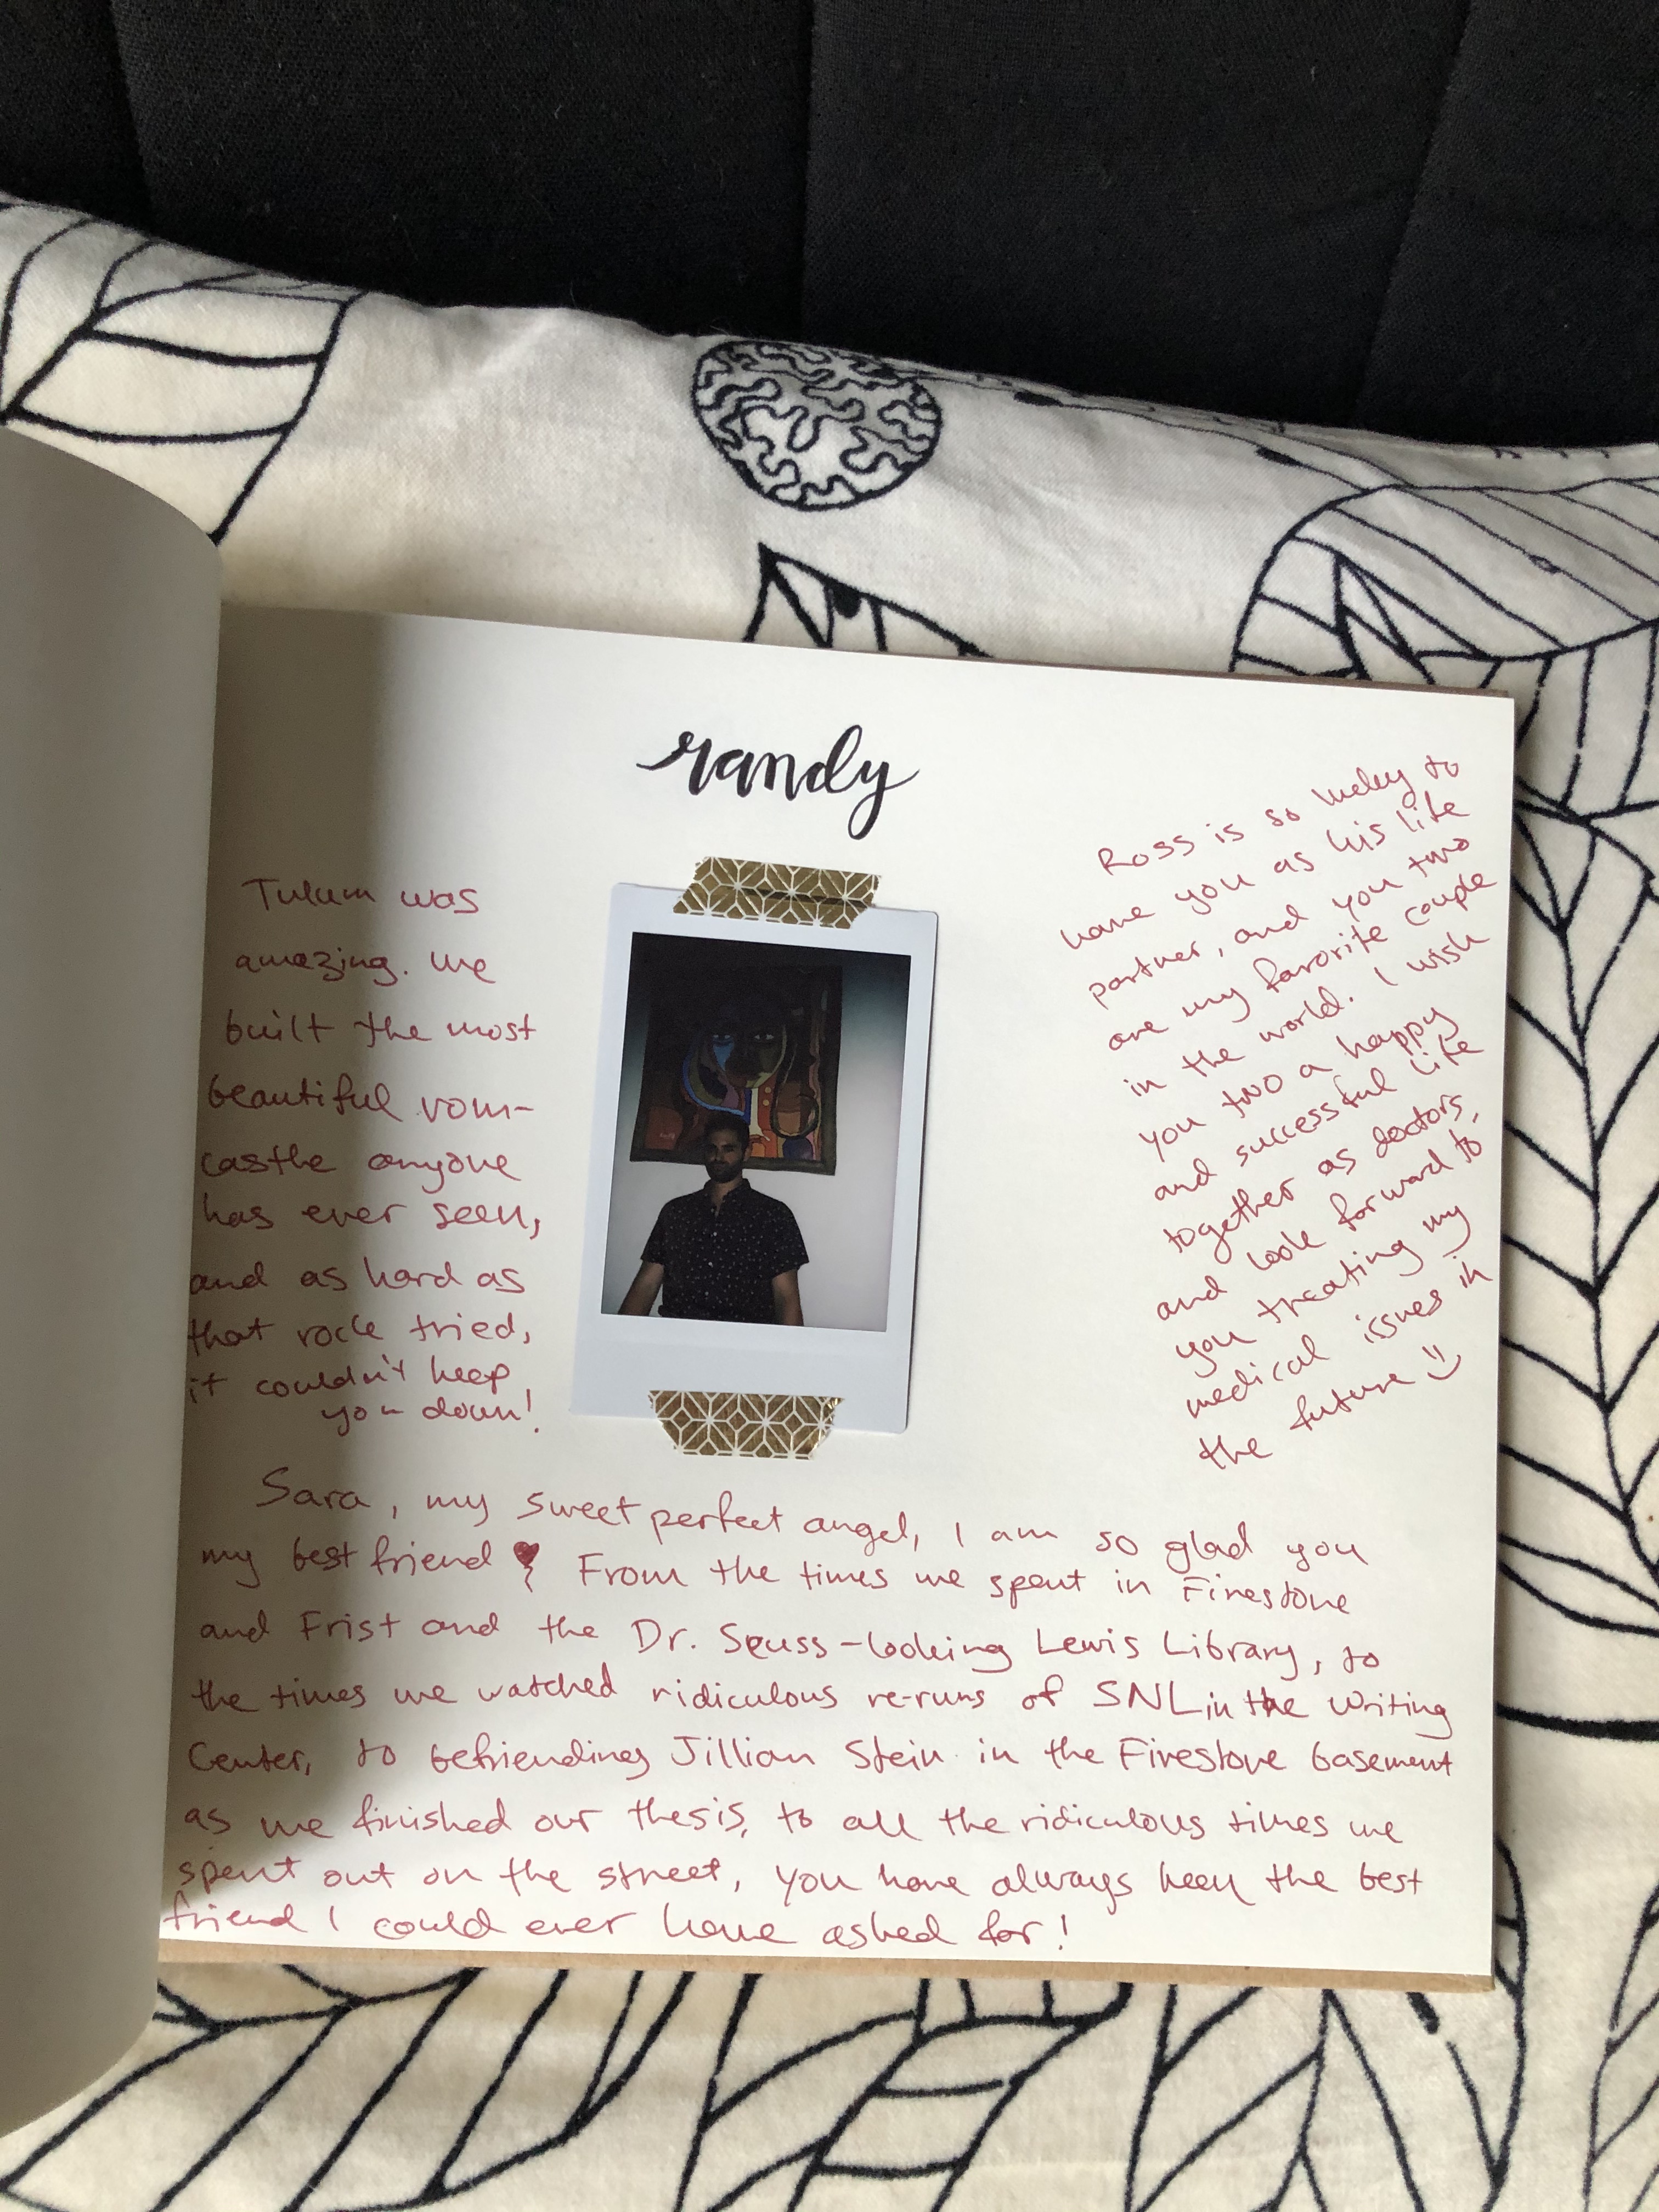 randy
Tulum was
amazing. We
built the most
beautiful rom-
castle anyone
has ever seen,
and as hard as
that rock tried,
it couldn't keep
you down!
Ross is so lucky to
have you as his life
partner, and you two
are my favorite couple
in the world. I wish
you two a happy
and successful life
together as doctors,
and look forward to
you treating my
medical issues in
the future
Sara, my sweet perfect angel, I am so glad you
my best friend From the times we spent in Firestone
and Frist and the Dr. Seuss-looking Lewis Library, to
the times we watched ridiculous re-runs of SNL in the Writing
Center, to befriending Jillian Stein in the Firestone basement
as we finished our thesis, to all the ridiculous times we
spent out on the street, you have always been the best
friend I could ever have asked for!